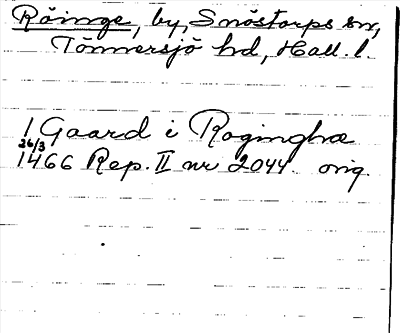 Räinge, by, Snöstorps sn,
Tönnersjö hd, Hall. l.
1 Gaard i Roginghæ
26/3
1466 Rep. II nr 2044. orig.